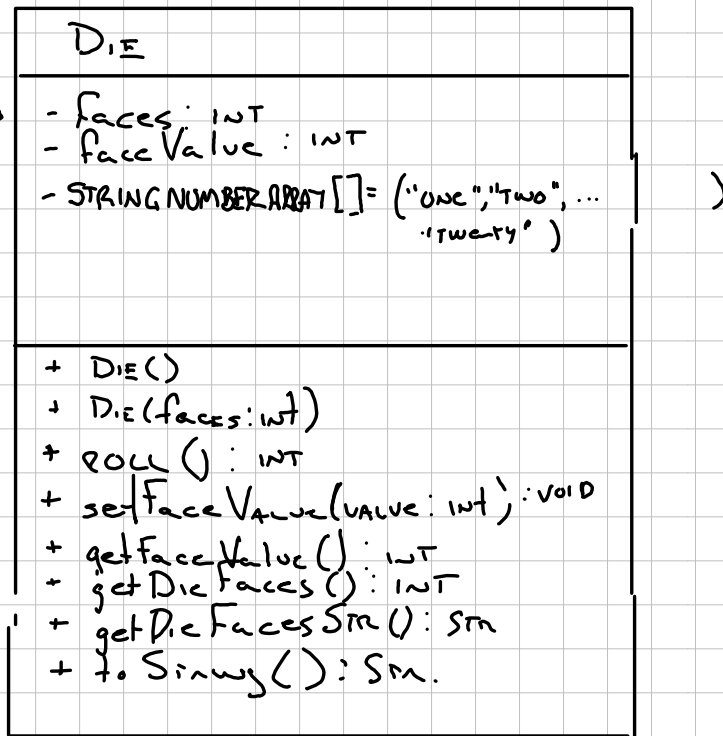 DIE
- faces: INT
- faceValue : INT
- STRINGNUMBERARRAY[]= ("ONE","TWO", ...
"Twenty" )
)
+ DIE()
+ DIE(faces:int)
+ ROLL() : INT
+ setFaceValue(VALUE: int) : VOID
+ getFaceValue() : INT
+ getDieFaces() : INT
+ getDieFacesStr() : STR
+ to